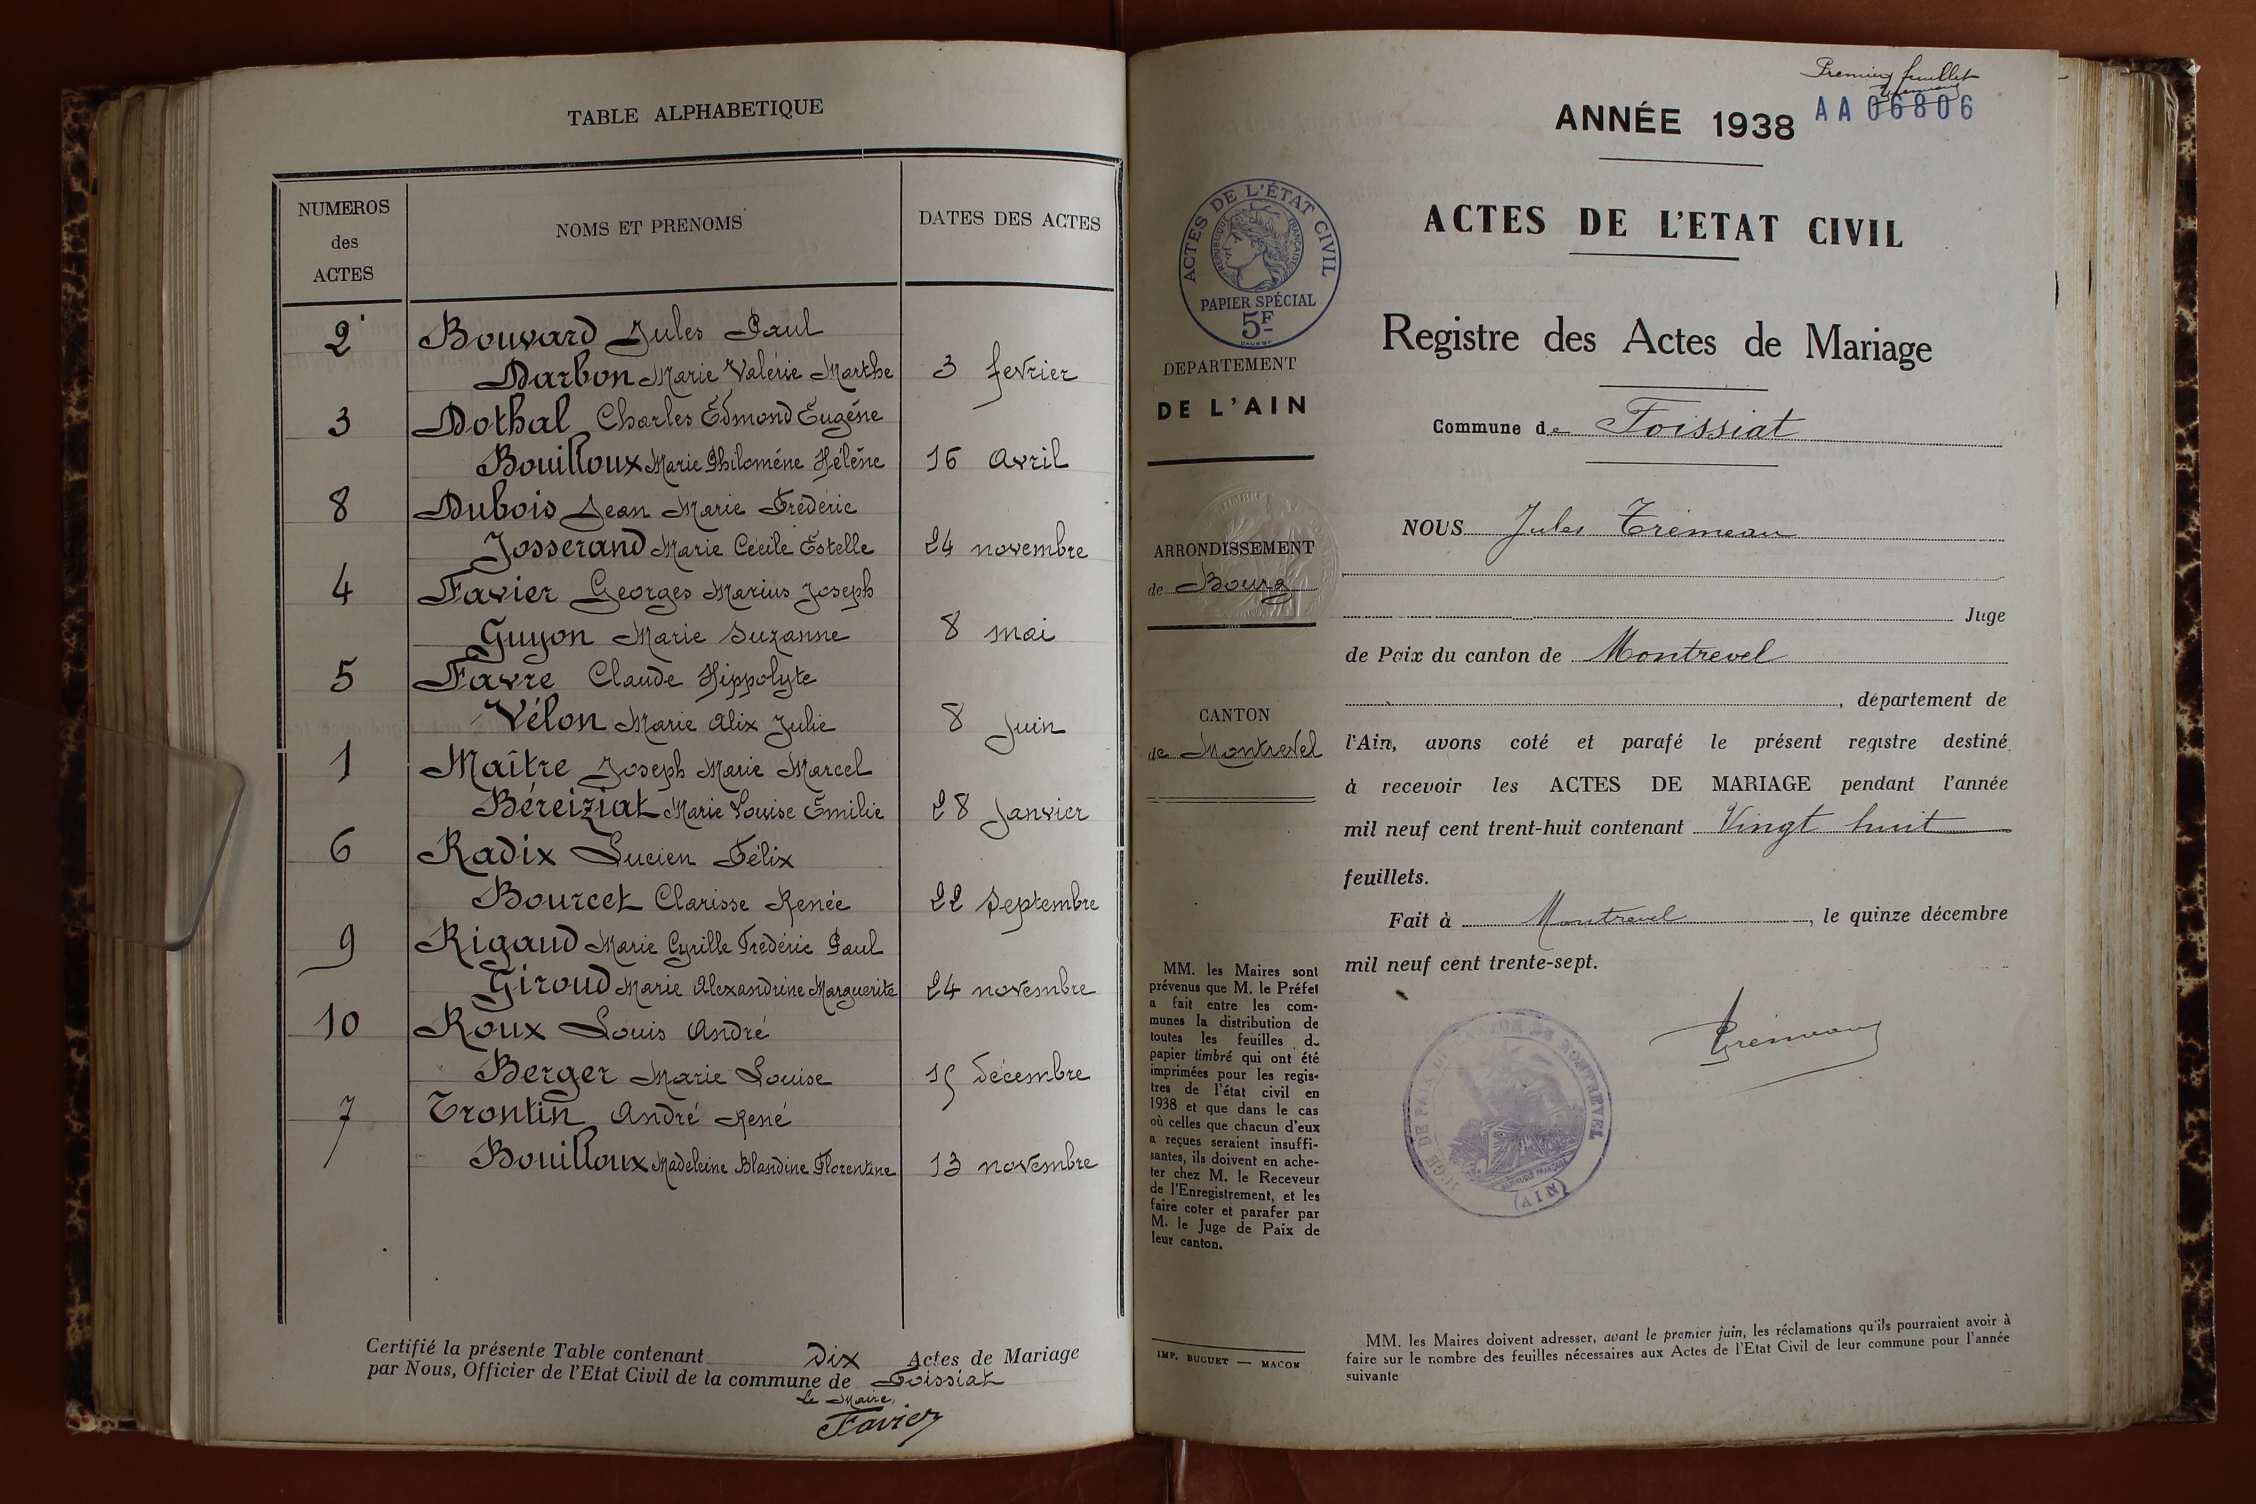 TABLE ALPHABETIQUE
NUMEROS
des
ACTES
NOMS ET PRENOMS
DATES DES ACTES
2 Bouvard Jules Paul
Darbon Marie Valérie Marthe 3 fevrier
3 Dothal Charles Edmond Eugéne
Bouilloux Marie Philoméne Hélène 16 avril
8 Dubois Jean Marie Frédéric
Josserand Marie Cécile Estelle 24 novembre
4 Favier Georges Marius Joseph
Guyon Marie Suzanne 8 mai
5 Favre Claude Hippolyte
Vélon Marie Alix Julie 8 juin
1 Maître Joseph Marie Marcel
Béreiziat Marie Louise Emilie 28 janvier
6 Radix Lucien Félix
Bourcet Clarisse Renée 22 septembre
9 Rigaud Marie Cyrille Frédéric Paul
Giroud Marie Alexandrine Marguerite 24 novembre
10 Roux Louis André
Berger Marie Louise 15 décembre
7 Trontin André René
Bouilloux Madeleine Blandine Florentine 13 novembre
Certifié la présente Table contenant Dix Actes de Mariage
par Nous, Officier de l'Etat Civil de la commune de Foissiat
Le Maire,
Favier
Premier feuillet
ANNÉE 1938 AA 06806
ACTES DE L'ÉTAT CIVIL
RÉPUBLIQUE FRANÇAISE
PAPIER SPÉCIAL
5F
ACTES DE L'ETAT CIVIL
Registre des Actes de Mariage
DEPARTEMENT
DE L'AIN
Commune de Foissiat
NOUS Jules Trémeau
ARRONDISSEMENT
de Bourg
Juge
de Paix du canton de Montrevel
, département de
CANTON
de Montrevel
l'Ain, avons coté et parafé le présent registre destiné
à recevoir les ACTES DE MARIAGE pendant l'année
mil neuf cent trent-huit contenant Vingt huit
feuillets.
Fait à Montrevel, le quinze décembre
mil neuf cent trente-sept.
Trémeau
JUGE DE PAIX DU CANTON DE MONTREVEL
(AIN)
MM. les Maires sont
prévenus que M. le Préfet
a fait entre les com-
munes la distribution de
toutes les feuilles d
papier timbré qui ont été
imprimées pour les regis-
tres de l'état civil en
1938 et que dans le cas
où celles que chacun d'eux
a reçues seraient insuffi-
santes, ils doivent en ache-
ter chez M. le Receveur
de l'Enregistrement, et les
faire coter et parafer par
M. le Juge de Paix de
leur canton.
IMP. BUGUET — MACON
MM. les Maires doivent adresser, avant le premier juin, les réclamations qu'ils pourraient avoir à
faire sur le nombre des feuilles nécessaires aux Actes de l'Etat Civil de leur commune pour l'année
suivante